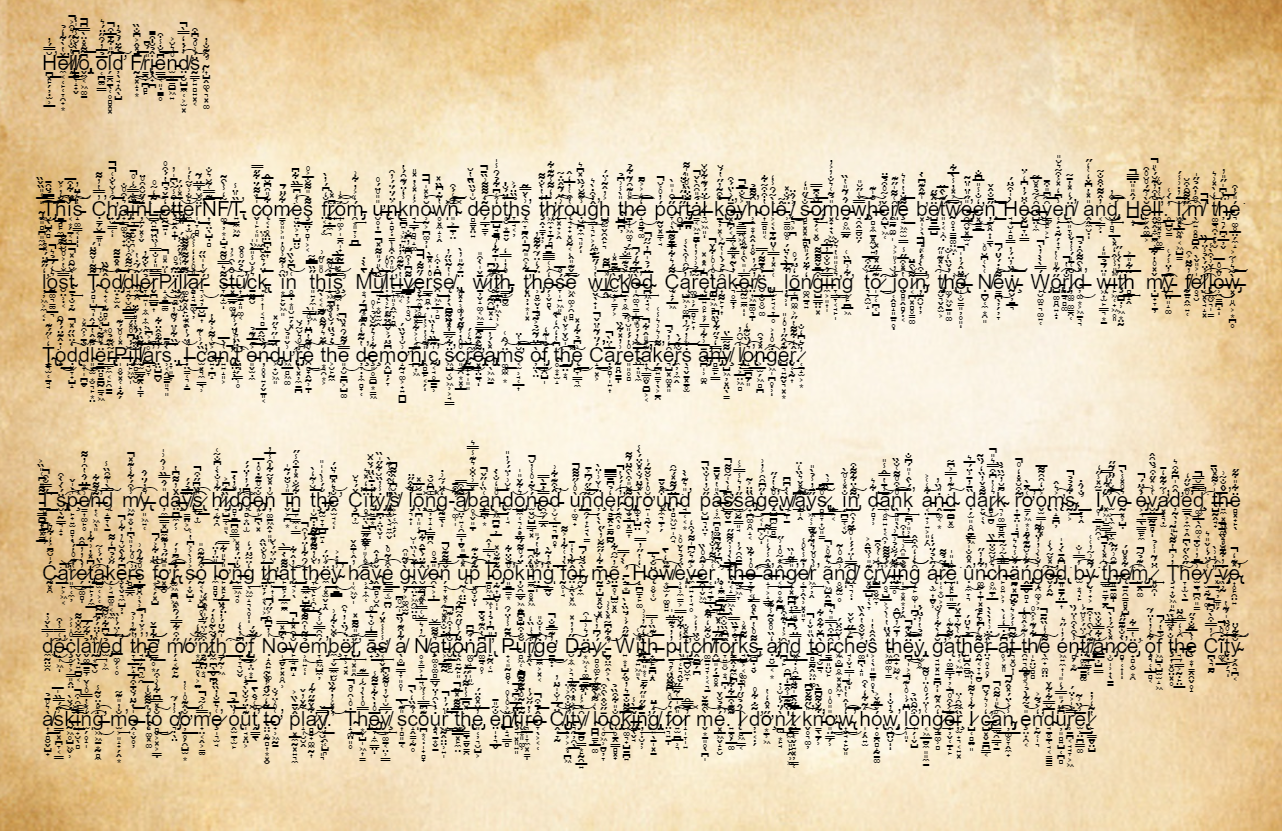 Hello old Friends.
This ChainLetterNFT comes from unknown depths through the portal keyhole, somewhere between Heaven and Hell. I'm the
lost ToddlerPillar stuck in this Multi-verse, with these wicked Caretakers, longing to join the New World with my fellow
ToddlerPillars. I can't endure the demonic screams of the Caretakers any longer.
I spend my days hidden in the City's long abandoned underground passageways, in dank and dark rooms. I've evaded the
Caretakers for so long that they have given up looking for me. However, the anger and crying are unchanged by them. They've
declared the month of November, as a National Purge Day. With pitchforks and torches they gather at the entrance of the City
asking me to come out to play. They scour the entire City looking for me. I don't know how longer I can endure!